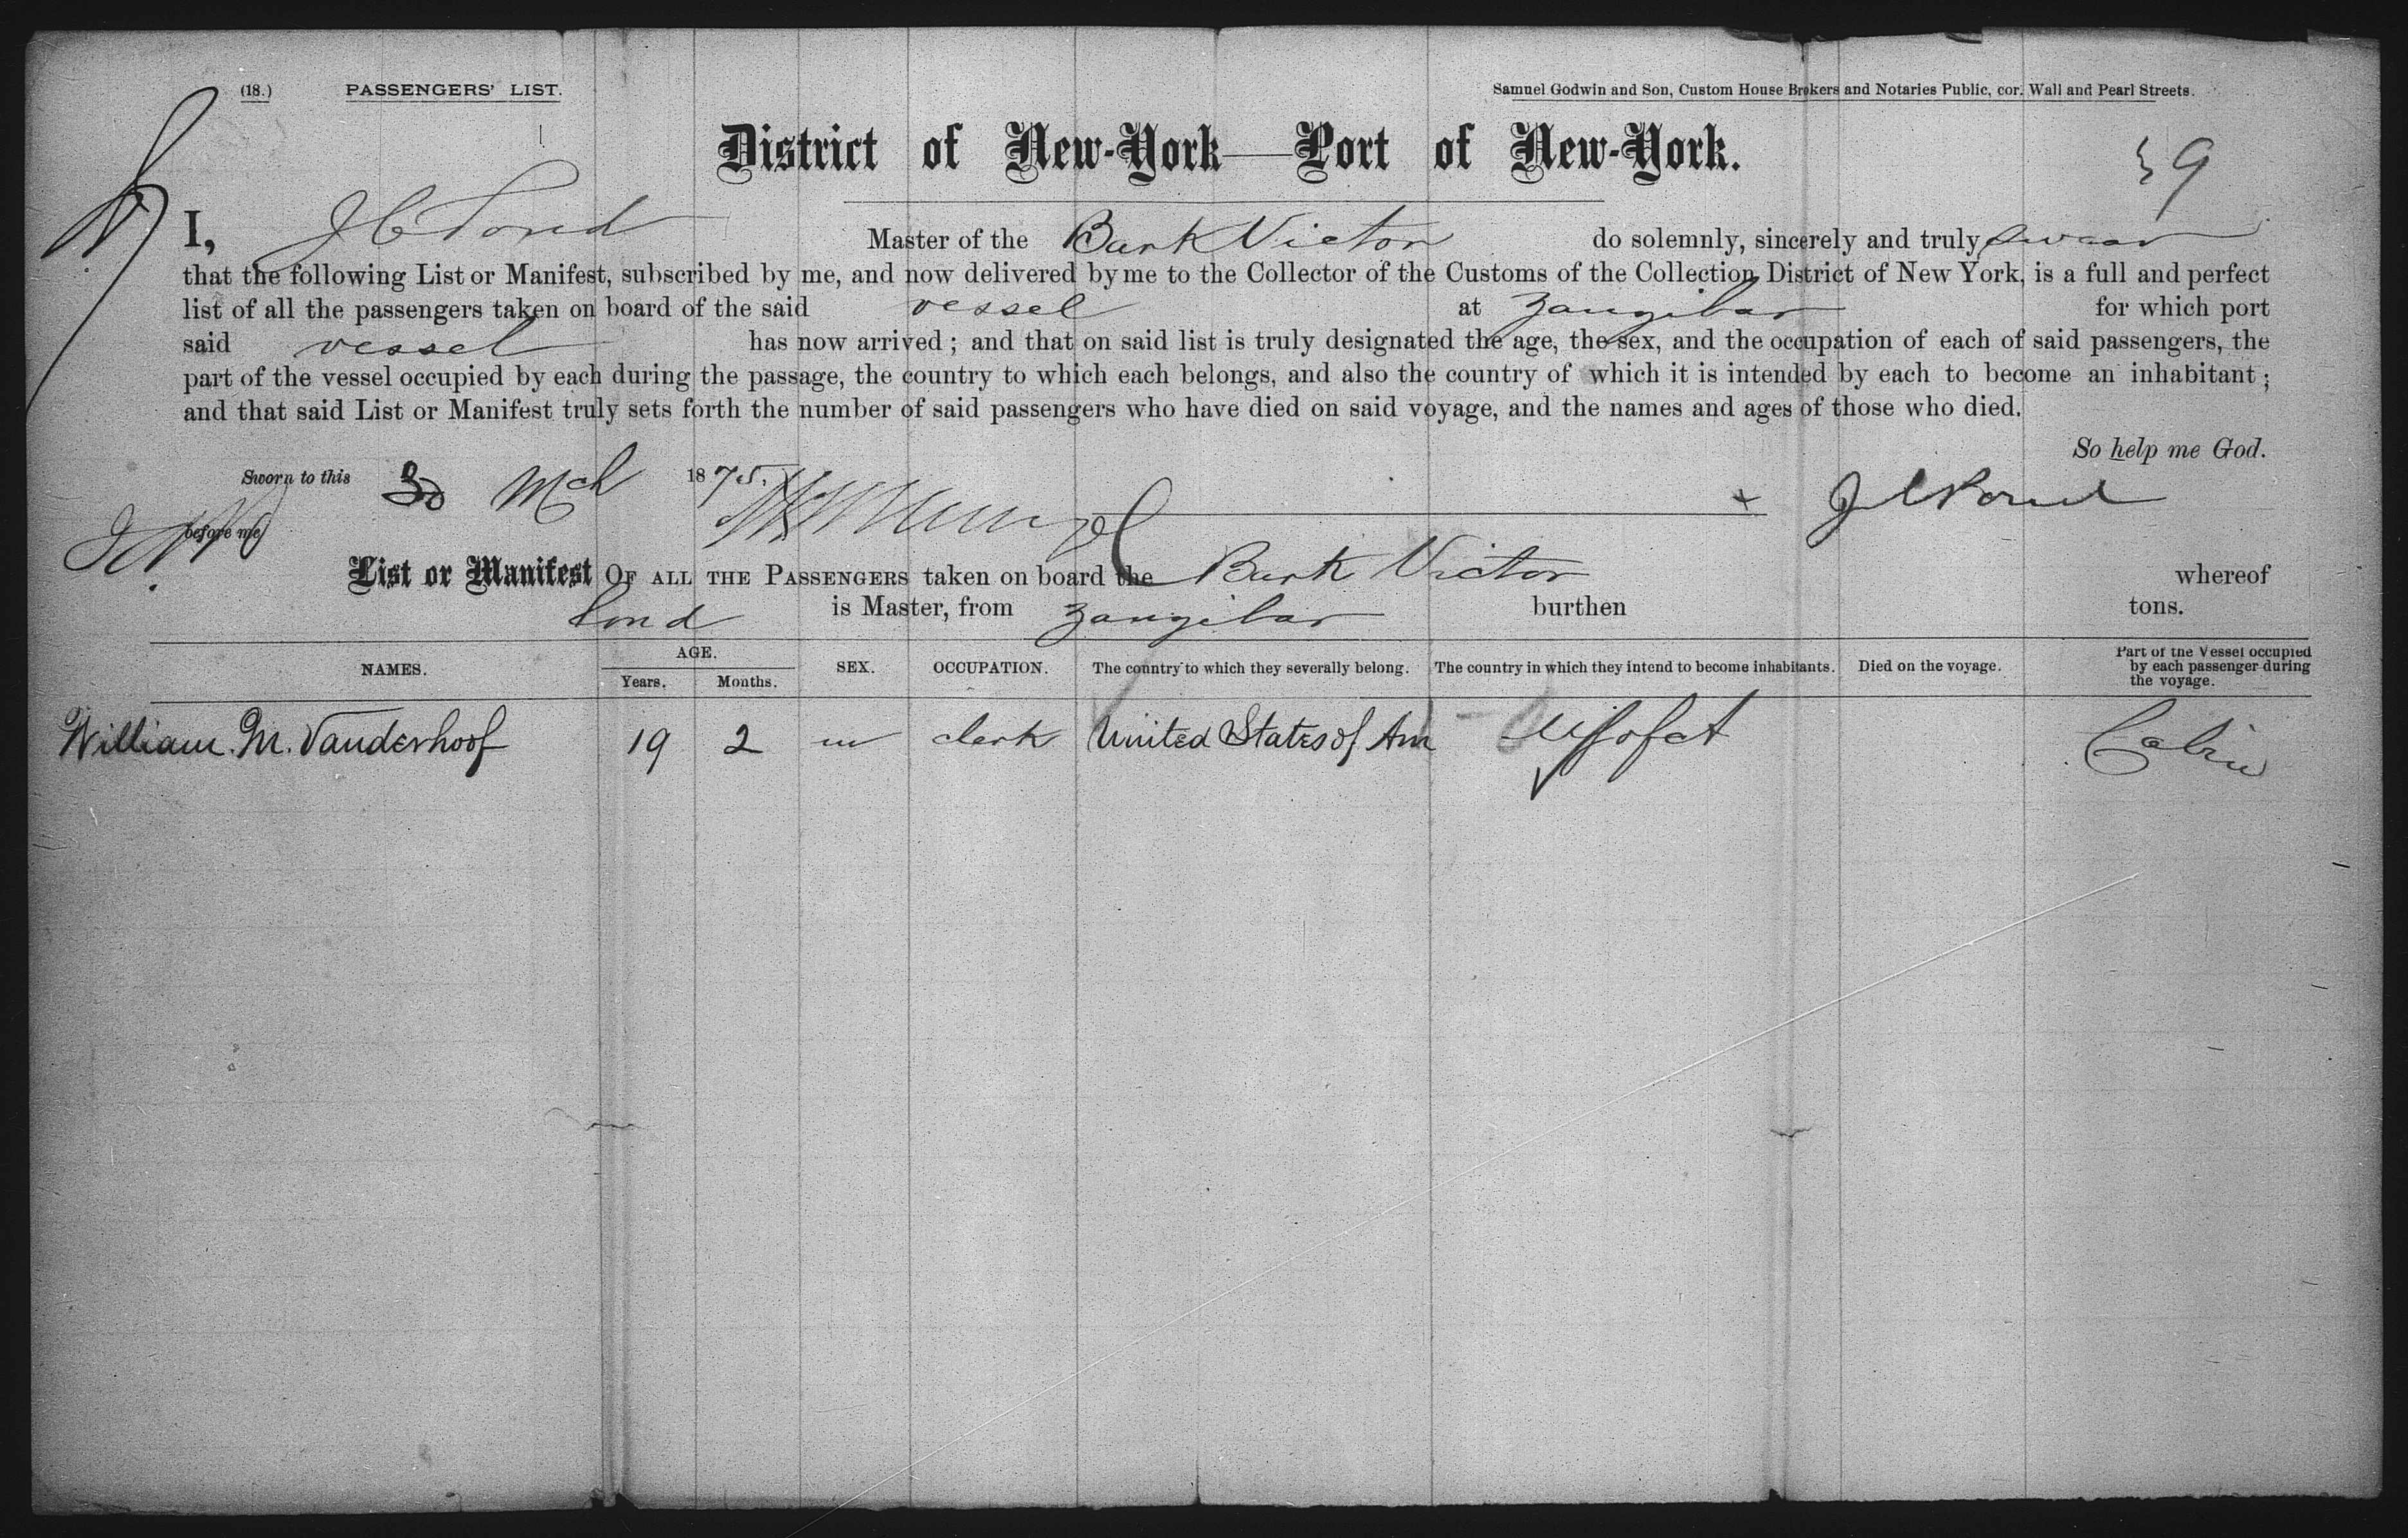 (18.) PASSENGERS' LIST.
Samuel Godwin and Son, Custom House Brokers and Notaries Public, cor. Wall and Pearl Streets.
District of New-York—Port of New-York.
I, J C Pond Master of the Bark Victor do solemnly, sincerely and truly swear
that the following List or Manifest, subscribed by me, and now delivered by me to the Collector of the Customs of the Collection District of New York, is a full and perfect
list of all the passengers taken on board of the said vessel at Zanzibar for which port
said vessel has now arrived ; and that on said list is truly designated the age, the sex, and the occupation of each of said passengers, the
part of the vessel occupied by each during the passage, the country to which each belongs, and also the country of which it is intended by each to become an inhabitant ;
and that said List or Manifest truly sets forth the number of said passengers who have died on said voyage, and the names and ages of those who died.
So help me God.
Sworn to this 30 Mch 1875. x J C Pond
before me
List or Manifest OF ALL THE PASSENGERS taken on board the Bark Victor whereof
Pond is Master, from Zanzibar burthen tons.
NAMES. AGE. Years. Months. SEX. OCCUPATION. The country to which they severally belong. The country in which they intend to become inhabitants. Died on the voyage. Part of the Vessel occupied by each passenger during the voyage.
William. M. Vanderhoof 19 2 m clerk United States of Am U S of A Cabin